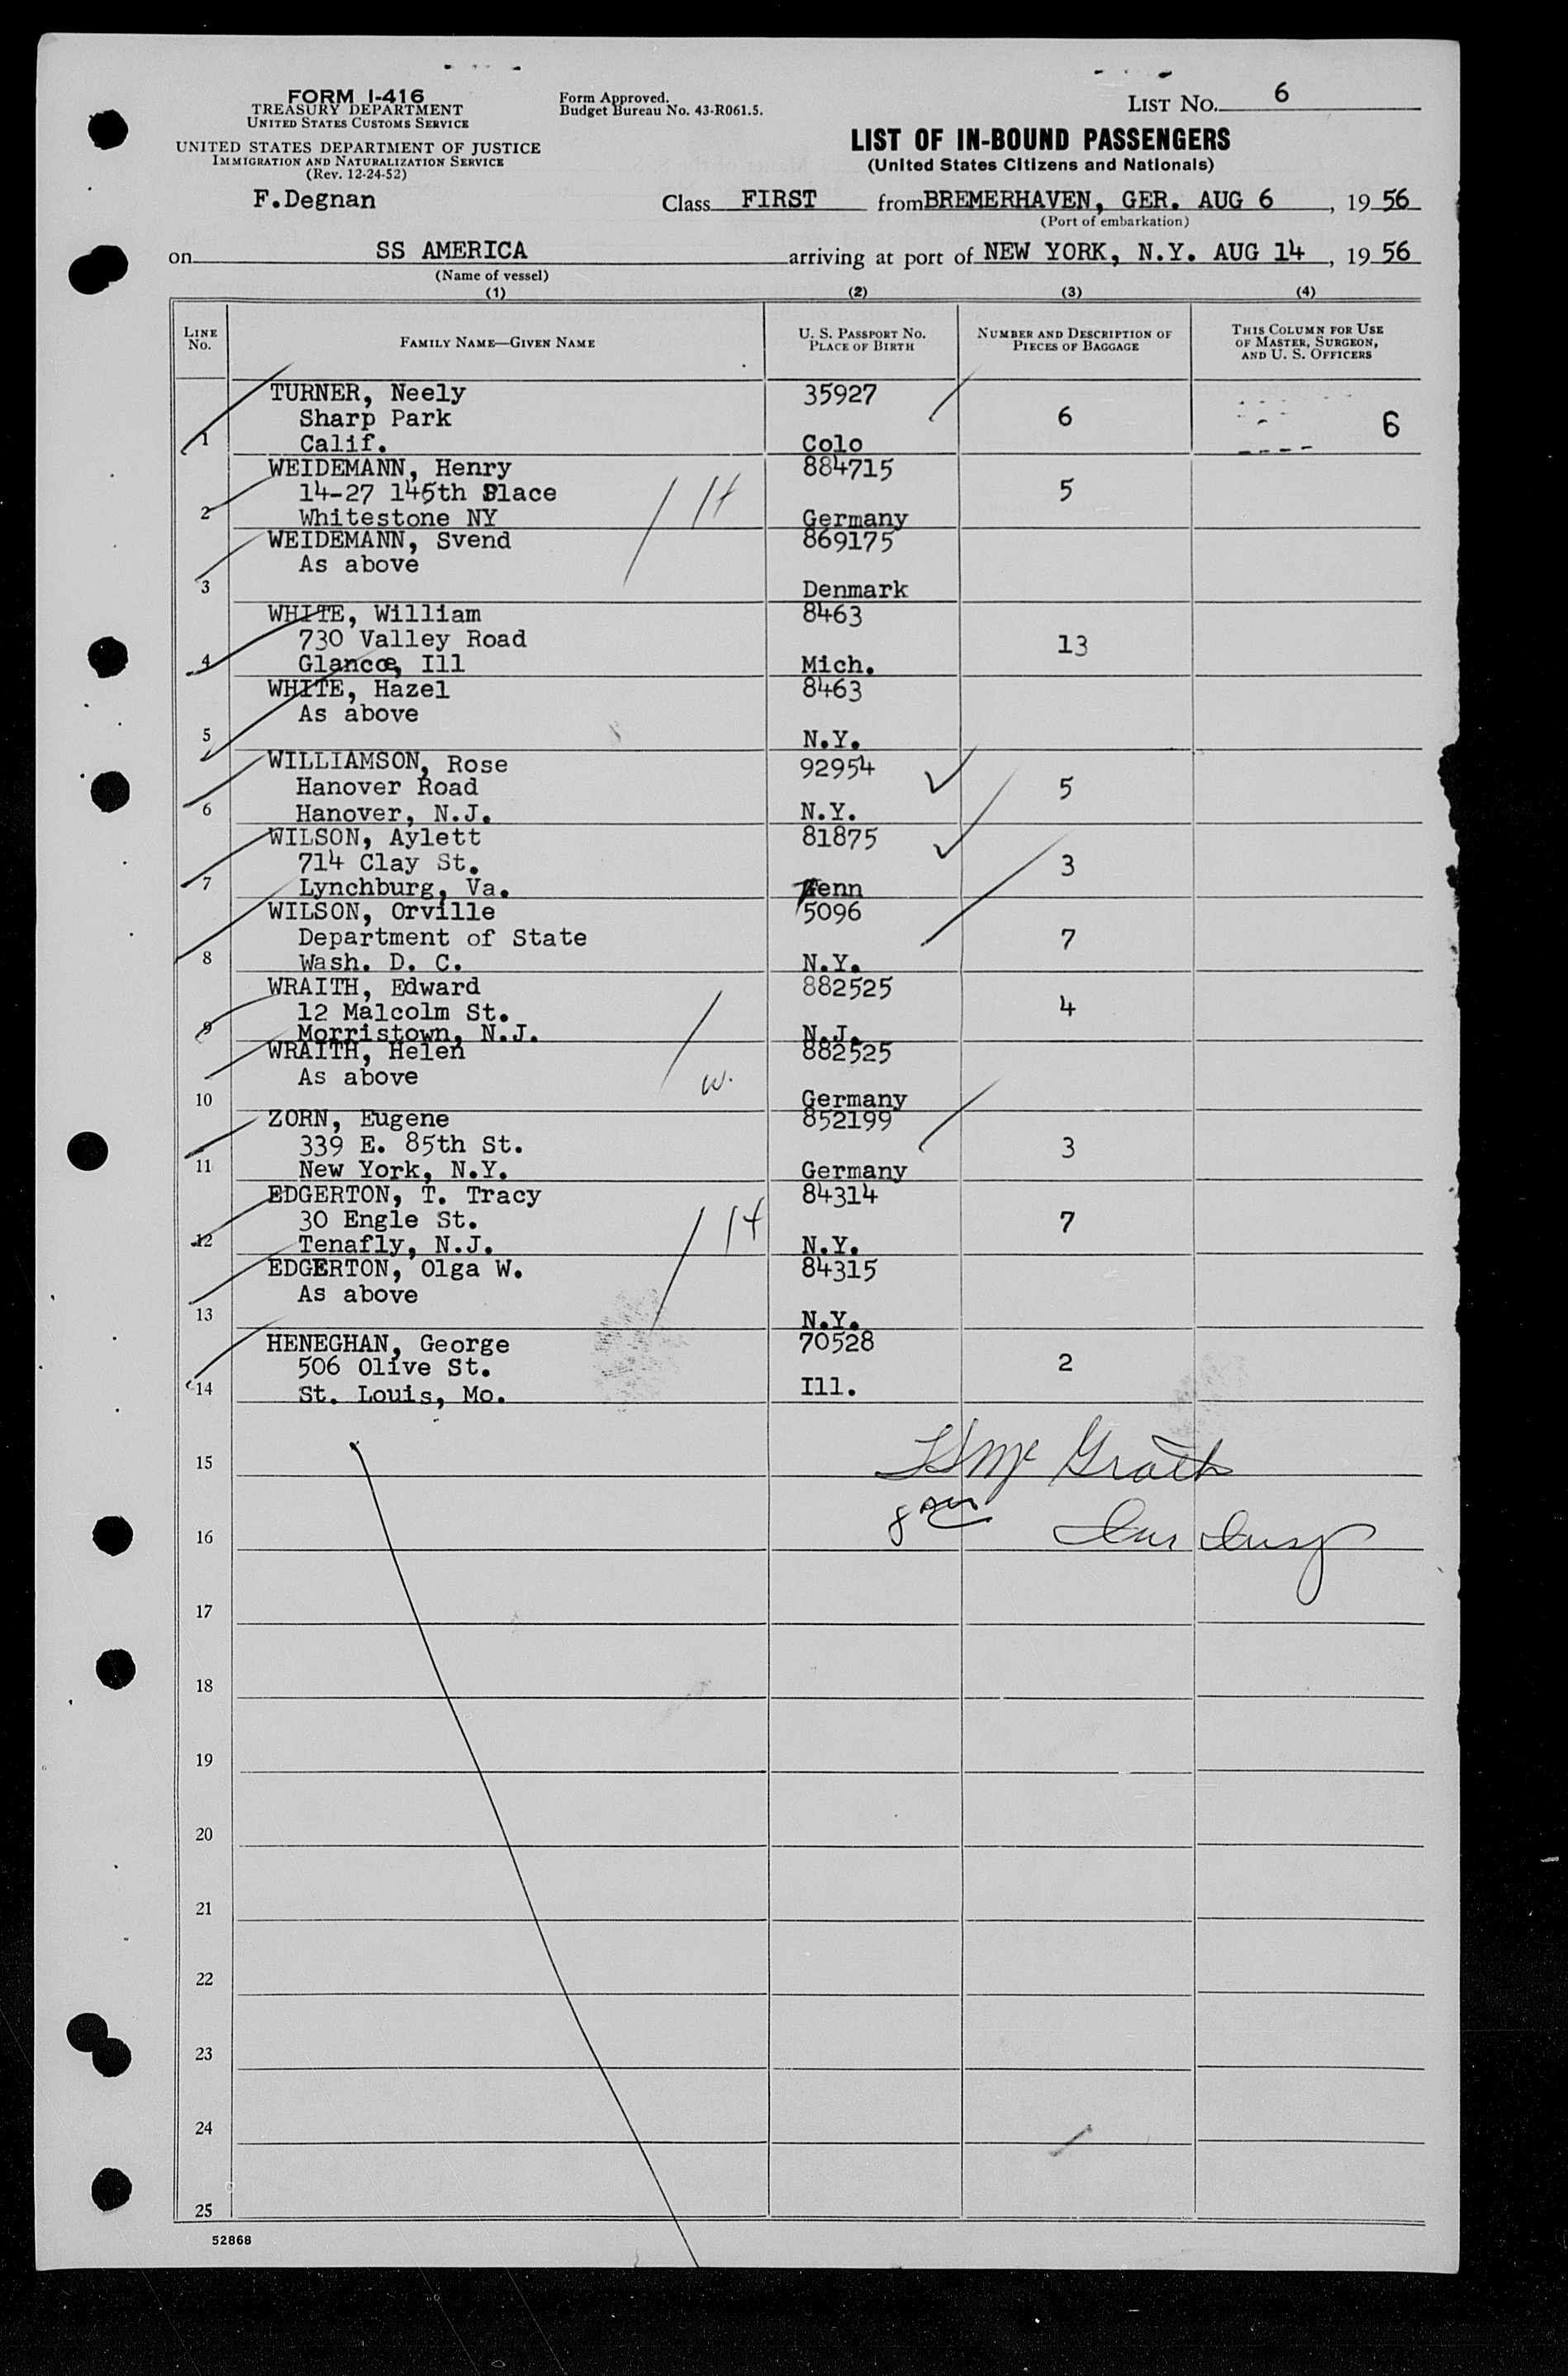 FORM I-416
TREASURY DEPARTMENT
UNITED STATES CUSTOMS SERVICE
UNITED STATES DEPARTMENT OF JUSTICE
IMMIGRATION AND NATURALIZATION SERVICE
(Rev. 12-24-52)
F.Degnan
Form Approved.
Budget Bureau No. 43-R061.5.
LIST NO. 6
LIST OF IN-BOUND PASSENGERS
(United States Citizens and Nationals)
Class FIRST from BREMERHAVEN, GER. AUG 6, 19 56
(Port of embarkation)
on SS AMERICA arriving at port of NEW YORK, N.Y. AUG 14, 19 56
(Name of vessel)
(1) (2) (3) (4)
LINE No. FAMILY NAME—GIVEN NAME U. S. PASSPORT NO. PLACE OF BIRTH NUMBER AND DESCRIPTION OF PIECES OF BAGGAGE THIS COLUMN FOR USE OF MASTER, SURGEON, AND U. S. OFFICERS
TURNER, Neely 35927
Sharp Park 6 6
1 Calif. Colo
WEIDEMANN, Henry 884715
14-27 145th Place 5
2 Whitestone NY Germany
WEIDEMANN, Svend 869175
As above
3 Denmark
WHITE, William 8463
730 Valley Road 13
4 Glancoe, Ill Mich.
WHITE, Hazel 8463
As above
5 N.Y.
WILLIAMSON, Rose 92954
Hanover Road 5
6 Hanover, N.J. N.Y.
WILSON, Aylett 81875
714 Clay St. 3
7 Lynchburg, Va. Tenn
WILSON, Orville 5096
Department of State 7
8 Wash. D. C. N.Y.
WRAITH, Edward 882525
12 Malcolm St. 4
9 Morristown, N.J. N.J.
WRAITH, Helen 882525
As above w.
10 Germany
ZORN, Eugene 852199
339 E. 85th St. 3
11 New York, N.Y. Germany
EDGERTON, T. Tracy 84314
30 Engle St. 7
12 Tenafly, N.J. N.Y.
EDGERTON, Olga W. 84315
As above
13 N.Y.
HENEGHAN, George 70528
506 Olive St. 2
14 St. Louis, Mo. Ill.
McGrath
15
16
17
18
19
20
21
22
23
24
25
52868